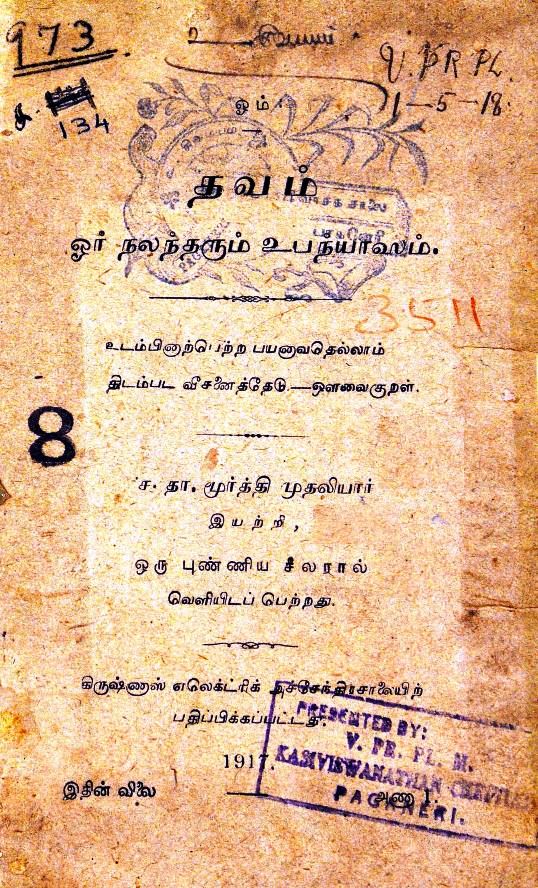 973
உ
V. PR PL.
1-5-18.
134
ஓம்
தவம்
ஓர் நலந்தரும் உபந்யாஸம்.
3511
உடம்பினாற்பெற்ற பயனாவதெல்லாம்
திடம்பட வீசனைத்தேடு.—ஔவைகுறள்.
8
ச. தா. மூர்த்தி முதலியார்
இயற்றி,
ஒரு புண்ணிய சீலரால்
வெளியிடப் பெற்றது.
கிருஷ்ணாஸ் எலெக்ட்ரிக் அச்சேந்திரசாலையிற்
பதிப்பிக்கப்பட்டது.
1917.
இதன் விலை அணா 1.
PRESENTED BY:
V. PR. PL. M.
KASIVISWANATHAN CHETTIAR
PAGANERI.